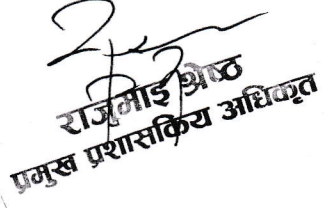 राजुभाई श्रेष्ठ
प्रमुख प्रशासकिय अधिकृत